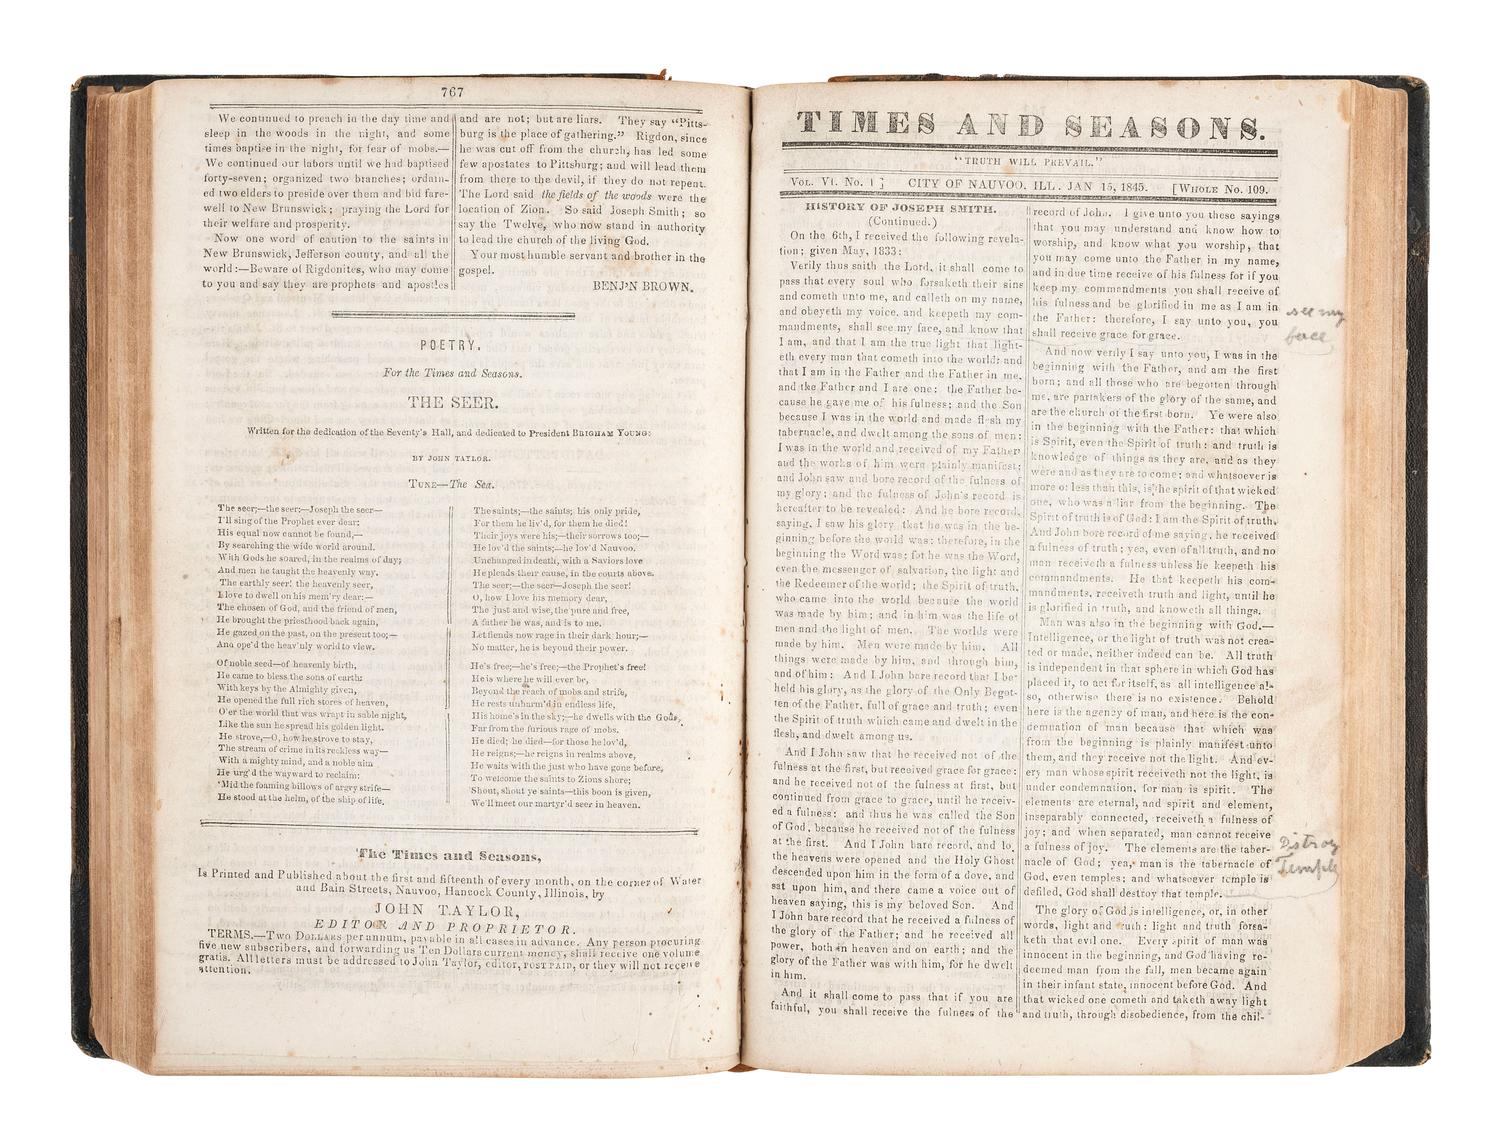 767
We continued to preach in the day time and
sleep in the woods in the night, and some
times baptise in the night, for fear of mobs.—
We continued our labors until we had baptised
forty-seven; organized two branches; ordain-
ed two elders to preside over them and bid fare-
well to New Brunswick; praying the Lord for
their welfare and prosperity.
Now one word of caution to the saints in
New Brunswick, Jefferson county, and all the
world:—Beware of Rigdonites, who may come
to you and say they are prophets and apostles
and are not; but are liars. They say "Pitts-
burg is the place of gathering." Rigdon, since
he was cut off from the church, has led some
few apostates to Pittsburg; and will lead them
from there to the devil, if they do not repent.
The Lord said the fields of the woods were the
location of Zion. So said Joseph Smith; so
say the Twelve, who now stand in authority
to lead the church of the living God.
Your most humble servant and brother in the
gospel.
BENJ'N BROWN.
POETRY.
For the Times and Seasons.
THE SEER.
Written for the dedication of the Seventy's Hall, and dedicated to President BRIGHAM YOUNG:
BY JOHN TAYLOR.
TUNE—The Sea.
The seer;—the seer:—Joseph the seer—
I'll sing of the Prophet ever dear:
His equal now cannot be found,—
By searching the wide world around.
With Gods he soared, in the realms of day;
And men he taught the heavenly way.
The earthly seer! the heavenly seer,
I love to dwell on his mem'ry dear:—
The chosen of God, and the friend of men,
He brought the priesthood back again,
He gazed on the past, on the present too;—
And ope'd the heav'nly world to view.
Of noble seed—of heavenly birth,
He came to bless the sons of earth:
With keys by the Almighty given,
He opened the full rich stores of heaven,
O'er the world that was wrapt in sable night,
Like the sun he spread his golden light.
He strove,—O, how he strove to stay,
The stream of crime in its reckless way—
With a mighty mind, and a noble aim
He urg'd the wayward to reclaim:
'Mid the foaming billows of angry strife—
He stood at the helm, of the ship of life.
The saints;—the saints; his only pride,
For them he liv'd, for them he died!
Their joys were his;—their sorrows too;—
He lov'd the saints;—he lov'd Nauvoo.
Unchanged in death, with a Saviors love
He pleads their cause, in the courts above.
The seer;—the seer—Joseph the seer!
O, how I love his memory dear,
The just and wise, the pure and free,
A father he was, and is to me.
Let fiends now rage in their dark hour;—
No matter, he is beyond their power.
He's free;—he's free;—the Prophet's free!
He is where he will ever be,
Beyond the reach of mobs and strife,
He rests unharm'd in endless life,
His home's in the sky;—he dwells with the Gods,
Far from the furious rage of mobs.
He died; he died—for those he lov'd,
He reigns;—he reigns in realms above,
He waits with the just who have gone before,
To welcome the saints to Zions shore;
Shout, shout ye saints—this boon is given,
We'll meet our martyr'd seer in heaven.
The Times and Seasons,
Is Printed and Published about the first and fifteenth of every month, on the corner of Water
and Bain Streets, Nauvoo, Hancock County, Illinois, by
JOHN TAYLOR,
EDITOR AND PROPRIETOR.
TERMS.—Two Dollars per annum, payable in all cases in advance. Any person procuring
five new subscribers, and forwarding us Ten Dollars current money, shall receive one volume
gratis. All letters must be addressed to John Taylor, editor, POST PAID, or they will not receive
attention.
TIMES AND SEASONS.
"TRUTH WILL PREVAIL."
VOL. VI. No. 1 ] CITY OF NAUVOO. ILL. JAN 15, 1845. [WHOLE No. 109.
HISTORY OF JOSEPH SMITH.
(Continued.)
On the 6th, I received the following revela-
tion; given May, 1833:
Verily thus saith the Lord, it shall come to
pass that every soul who forsaketh their sins
and cometh unto me, and calleth on my name,
and obeyeth my voice, and keepeth my com-
mandments, shall see my face, and know that
I am, and that I am the true light that light-
eth every man that cometh into the world: and
that I am in the Father and the Father in me,
and the Father and I are one: the Father be-
cause he gave me of his fulness; and the Son
because I was in the world and made flesh my
tabernacle, and dwelt among the sons of men:
I was in the world and received of my Father
and the works of him were plainly manifest;
and John saw and bore record of the fulness of
my glory; and the fulness of John's record is
hereafter to be revealed: And he bore record,
saying, I saw his glory that he was in the be-
ginning before the world was: therefore, in the
beginning the Word was; for he was the Word,
even the messenger of salvation, the light and
the Redeemer of the world; the Spirit of truth,
who came into the world because the world
was made by him; and in him was the life of
men and the light of men. The worlds were
made by him. Men were made by him. All
things were made by him, and through him,
and of him: And I John bare record that I be-
held his glory, as the glory of the Only Begot-
ten of the Father, full of grace and truth; even
the Spirit of truth which came and dwelt in the
flesh, and dwelt among us.
And I John saw that he received not of the
fulness at the first, but received grace for grace:
and he received not of the fulness at first, but
continued from grace to grace, until he receiv-
ed a fulness: and thus he was called the Son
of God, because he received not of the fulness
at the first. And I John bare record, and lo,
the heavens were opened and the Holy Ghost
descended upon him in the form of a dove, and
sat upon him, and there came a voice out of
heaven saying, this is my beloved Son. And
I John bare record that he received a fulness of
the glory of the Father; and he received all
power, both in heaven and on earth; and the
glory of the Father was with him, for he dwelt
in him.
And it shall come to pass that if you are
faithful, you shall receive the fulness of the
record of John. I give unto you these sayings
that you may understand and know how to
worship, and know what you worship, that
you may come unto the Father in my name,
and in due time receive of his fulness for if you
keep my commandments you shall receive of
his fulness and be glorified in me as I am in
the Father: therefore, I say unto you, you
shall receive grace for grace.
And now verily I say unto you, I was in the
beginning with the Father, and am the first
born; and all those who are begotten through
me, are partakers of the glory of the same, and
are the church of the first born. Ye were also
in the beginning with the Father: that which
is Spirit, even the Spirit of truth: and truth is
knowledge of things as they are, and as they
were and as they are to come; and whatsoever is
more or less than this, is the spirit of that wicked
one, who was a liar from the beginning. The
Spirit of truth is of God: I am the Spirit of truth,
And John bore record of me saying, he received
a fulness of truth; yea, even of all truth, and no
man receiveth a fulness unless he keepeth his
commandments. He that keepeth his com-
mandments, receiveth truth and light, until he
is glorified in truth, and knoweth all things.
Man was also in the beginning with God.—
Intelligence, or the light of truth was not crea-
ted or made, neither indeed can be. All truth
is independent in that sphere in which God has
placed it, to act for itself, as all intelligence al-
so, otherwise there is no existence. Behold
here is the agency of man, and here is the con-
demnation of man because that which was
from the beginning is plainly manifest unto
them, and they receive not the light. And ev-
ery man whose spirit receiveth not the light, is
under condemnation, for man is spirit. The
elements are eternal, and spirit and element,
inseparably connected, receiveth a fulness of
joy; and when separated, man cannot receive
a fulness of joy. The elements are the taber-
nacle of God; yea, man is the tabernacle of
God, even temples; and whatsoever temple is
defiled, God shall destroy that temple.
The glory of God is intelligence, or, in other
words, light and truth: light and truth forsa-
keth that evil one. Every spirit of man was
innocent in the beginning, and God having re-
deemed man from the fall, men became again
in their infant state, innocent before God. And
that wicked one cometh and taketh away light
and truth, through disobedience, from the chil-
see my
face
Distroy
Temple